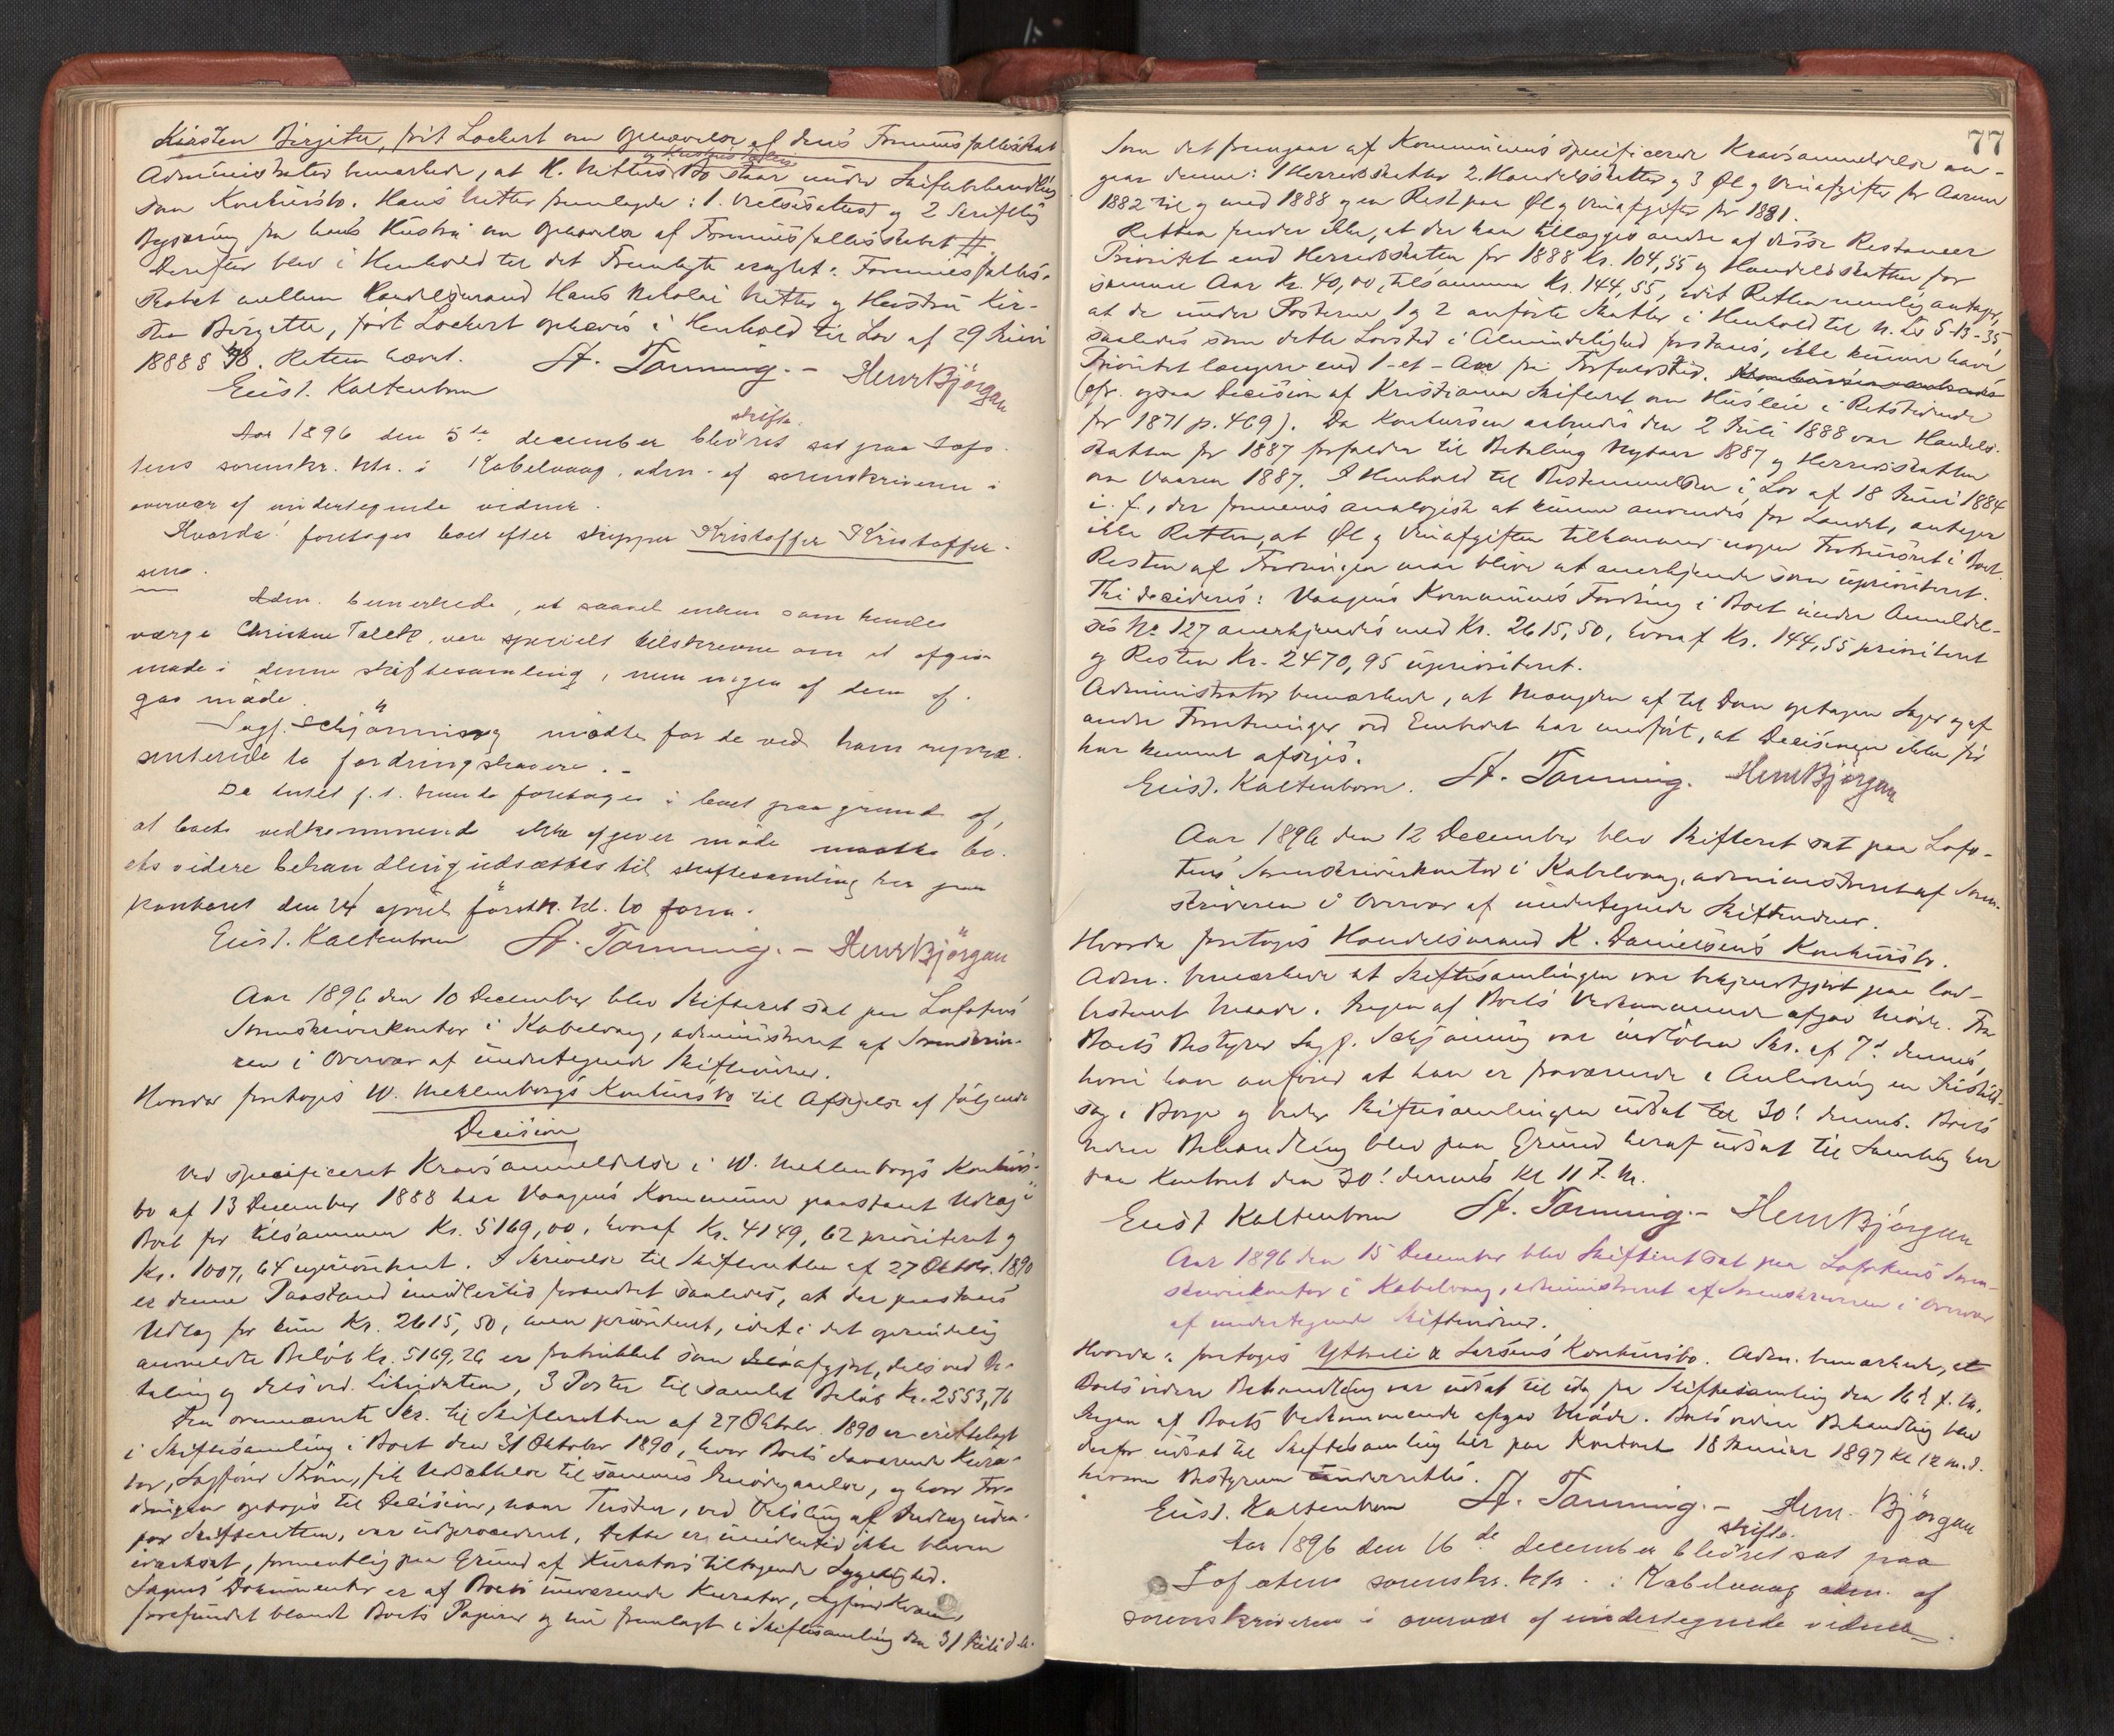 Kirsten Birgitte, født Lockert om Ophævelse af deres Formuesfællesskab
og Hustrus fælles
Administrator bemærkede, at H. Bo staar under Skiftebehandling
som Konkursbo. Hans fremlagde: 1. og 2 Skriftlig
Begjæring fra hans Hustru om Ophævelse af Formuesfællesskabet #.
Derefter blev i Henhold til det Fremlagte eragtet: Formuesfælles-
skabet mellem Handelsmand Hans Nikolai og Hustru Kir-
sten Birgitte, født Lockert ophæves i Henhold til Lov af 29 Juni
1888 § 48. Retten hævet.
Eust. Kaltenborn A. Tønning.- Henr Bjørgan
skifte
Aar 1896 den 5te december blev ret sat paa Lofo-
tens sorenskr. ktr. i Kabelvaag, adm. af sorenskriveren i
overvær af undertegnede vidner.
Hvorda: foretages boet efter skipper Kristoffer Kristoffer-
sen.
Adm. bemerkede, at saavel enken som hendes
værge Christen Toleth, var specielt tilskrevne om at afgive
møde i denne skiftesamling, men ingen af dem af-
gav møde.
Sagf. Schjønning mødte for de ved ham repræ-
senterede to fordringshavere.-
Da intet f. t. kunde foretages i boet paa grund af,
at boets vedkommende ikke afgiver møde maatte bo-
ets videre behandling udsættes til skiftesamling her paa
kontoret den 24 april førstk. kl. 10 form.
Eust. Kaltenborn A. Tønning.- Henr Bjørgan
Aar 1896 den 10 December blev Skifteret sat paa Lofotens
Sorenskriverkontor i Kabelvaag, administreret af Sorenskrive-
ren i Overvær af undertegnede Skiftevidner.
Hvorda foretoges W. Mehlenborgs Konkursbo til Afsigelse af følgende
Decision
Ved specificeret Kravsanmeldelse i W. Mehlenborgs Konkurs-
bo af 13 December 1888 har Vaagens Kommune paastaaet Udlæg i
Boet for tilsammen Kr. 5169,00, hvoraf Kr. 4149,62 prioriteret og
Kr. 1007,64 uprioriteret. I Skrivelse til Skifteretten af 27 Oktbr. 1890
er denne Paastand imidlertid forandret saaledes, at der paastaaes
Udlæg for kun Kr. 2615,50, men prioriteret, idet i det oprindelig
anmeldte Beløb Kr. 5169,26 er fratrukket som afgjort, dels ved Be-
taling og dels ved Likvidation, 3 Poster til samlet Beløb Kr. 2553,76
Den ovennævnte Skr. til Skifteretten af 27 Oktober 1890 er
i Skiftesamling i Boet den 31 Oktober 1890, hvor Boets daværende Kura-
tor, Sagfører Strøm, fik Udsættelse til sammes Imødegaaelse, og hvor For-
dringen optoges til Decision, naar Tvisten, ved Veksling af Indlæg uden-
for Skifteretten, var udprocederet. Dette er imidlertid ikke bleven
iværksat, formentlig paa Grund af Kurators tiltagende Sygelighed.
Sagens Dokumenter er af Boets nuværende Kurator, Sagfører
forefundet blandt Boets Papirer og nu fremlagt i Skiftesamling den 31 Juli d. A.
77
Som det fremgaar af Kommunens specificerede Kravsanmeldelse an-
gaar denne: 1 Herredsskatter 2. Handelsskatter og 3 Øl og Vinafgifter for Aarene
1882 til og med 1888 og en Rest paa Øl og Vinafgifter for 1881.
Retten finder ikke, at der kan tillægges andre af disse Restancer
Prioritet end Herredsskatten for 1888 Kr. 104,55 og Handelsskatten for
samme Aar Kr. 40,00, tilsammen Kr. 144,55, idet Retten nemlig antager,
at de under Posterne 1 og 2 anførte Skatter i Henhold til N. L. 5-13-35
saaledes som dette Lovsted i Almindelighed forstaaes, ikke kunne have
Prioritet længere end 1-et-Aar fra Forfaldstid.
(cfr. ogsaa Decision af Kristiania Skifteret om Husleie i Retstidende
for 1871 p. 469). Da Konkursen aabnedes den 2 Juli 1888 var Handels-
skatten for 1887 forfalden til Betaling Nytaar 1887 og Herredsskatten
om Vaaren 1887. I Henhold til Bestemmelsen i Lov af 18 Juni 1884
i. f., der formenes analogisk at kunne anvendes for Landet, antager
ikke Retten, at Øl og Vinafgiften tilkommer nogen Fortrinsret i Boet.
Resten af Fordringen maa blive at anerkjende som uprioriteret.
Thi decideres: Vaagens Kommunes Fordring i Boet under Anmeldel-
ses No 127 anerkjendes med Kr. 2615,50, hvoraf Kr. 144,55 prioriteret
og Resten Kr. 2470,95 uprioriteret.
Administrator bemærkede, at Mængden af til Dom optagne Sager og af
andre Forretninger ved Embedet har medført, at Decisionen ikke før
har kunnet afsiges.
Eust. Kaltenborn. A. Tønning. Henr Bjørgan
Aar 1896 den 12 December blev Skifteret sat paa Lofo-
tens Sorenskriverkontor i Kabelvaag, administreret af Soren-
skriveren i Overvær af undertegnede Skiftevidner.
Hvorda foretoges Handelsmand K. Danielsens Konkursbo.
Adm. bemærkede at Skiftesamlingen var bekjendtgjort paa lov-
bestemt Maade. Ingen af Boets Vedkommende afgav Møde. Fra
Boets Bestyrer Sagf. Schjønning var indløben Skr. af 7d dennes,
hvori han anfører at han er fraværende i Anledning en
sag i Borge og beder Skiftesamlingen udsat til 30! dennes. Boets
videre Behandling blev paa Grund heraf udsat til Samling her
paa Kontoret den 30! dennes Kl 11 F. M.
Eust Kaltenborn A. Tønning.- Henr Bjørgan
Aar 1896 den 15 December blev Skifteret sat paa Lofotens Soren-
skriverkontor i Kabelvaag, administreret af Sorenskriveren i Overvær
af undertegnede Skiftevidner.
Hvorda: foretoges Ytteli & Larsens Konkursbo. Adm. bemærkede, at
Boets videre Behandling var udsat til idag fra Skiftesamling den 16d f. M.
Ingen af Boets Vedkommende afgav Møde. Boets videre Behandling blev
derfor udsat til Skiftesamling her paa Kontoret 18 Januar 1897 Kl 12 m.d.
hvorom Bestyreren underrettes.
Eust. Kaltenborn A. Tønning.- Henr. Bjørgan
skifte.
Aar 1896 den 16de december blev ret sat paa
Lofotens sorenskr. ktr. i Kabelvaag adm. af
sorenskriveren i overvær af undertegnede vidner.